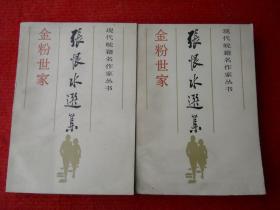 金粉世家
张恨水选集
现代皖籍名作家丛书
金粉世家
张恨水选集
现代皖籍名作家丛书